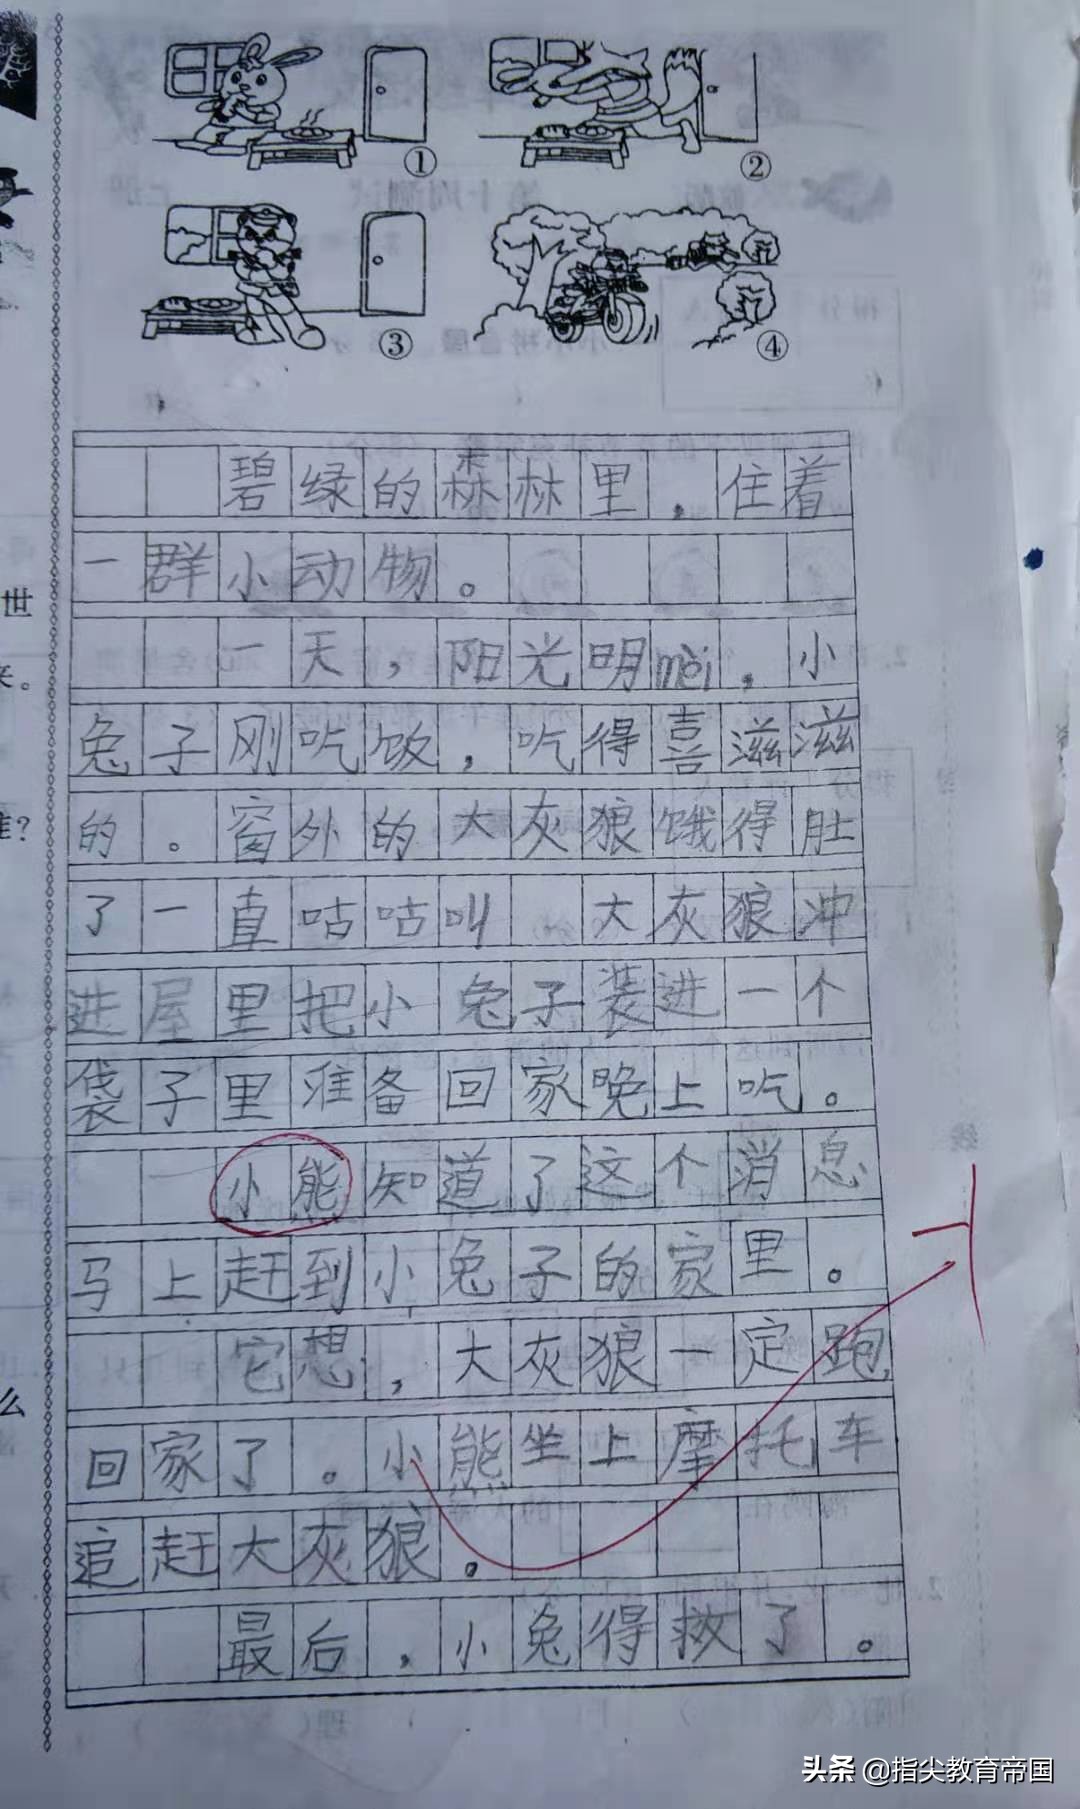 ① ②
③ ④
碧绿的森林里，住着
一群小动物。
一天，阳光明mèi，小
兔子刚吃饭，吃得喜滋滋
的。窗外的大灰狼饿得肚
了一直咕咕叫 大灰狼冲
进屋里把小兔子装进一个
袋子里准备回家晚上吃。
一小熊知道了这个消息
马上赶到小兔子的家里。
它想，大灰狼一定跑
回家了。小熊坐上摩托车
追赶大灰狼。
最后，小兔得救了。
世
来。
谁？
么
头条 @指尖教育帝国